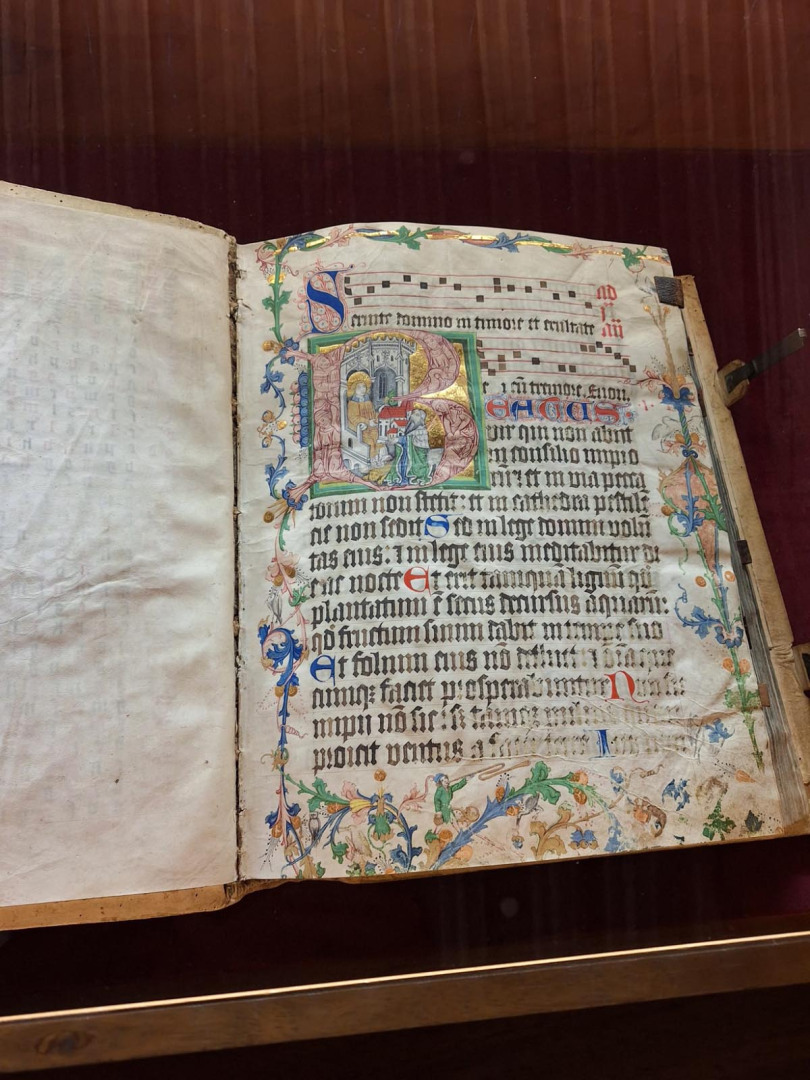 Seruite domino in timore et exultate ad
ei cū tremore. Euou.
BEATUS
vir qui non abiit
in consilio impio
rum: et in via pecca
torum non stetit: et in cathedra pestilē
cie non sedit Sed in lege domini volū
tas eius: et in lege eius meditabitur di
e ac nocte Et erit tamquā lignū qd
plantatum ē secus decursus aquarum:
qd fructum suum dabit in tempore suo
Et folium eius nō defluet
cumqz faciet prosperabuntur Non
impii nō sic: sʒ tamqz
proicit ventus a